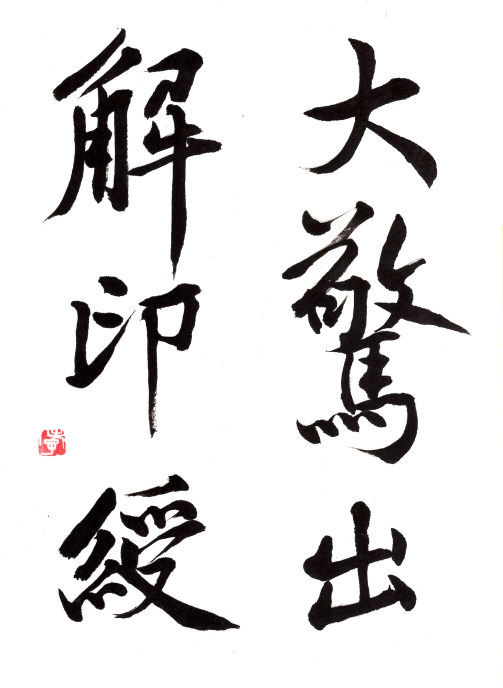 大驚出
解印綬